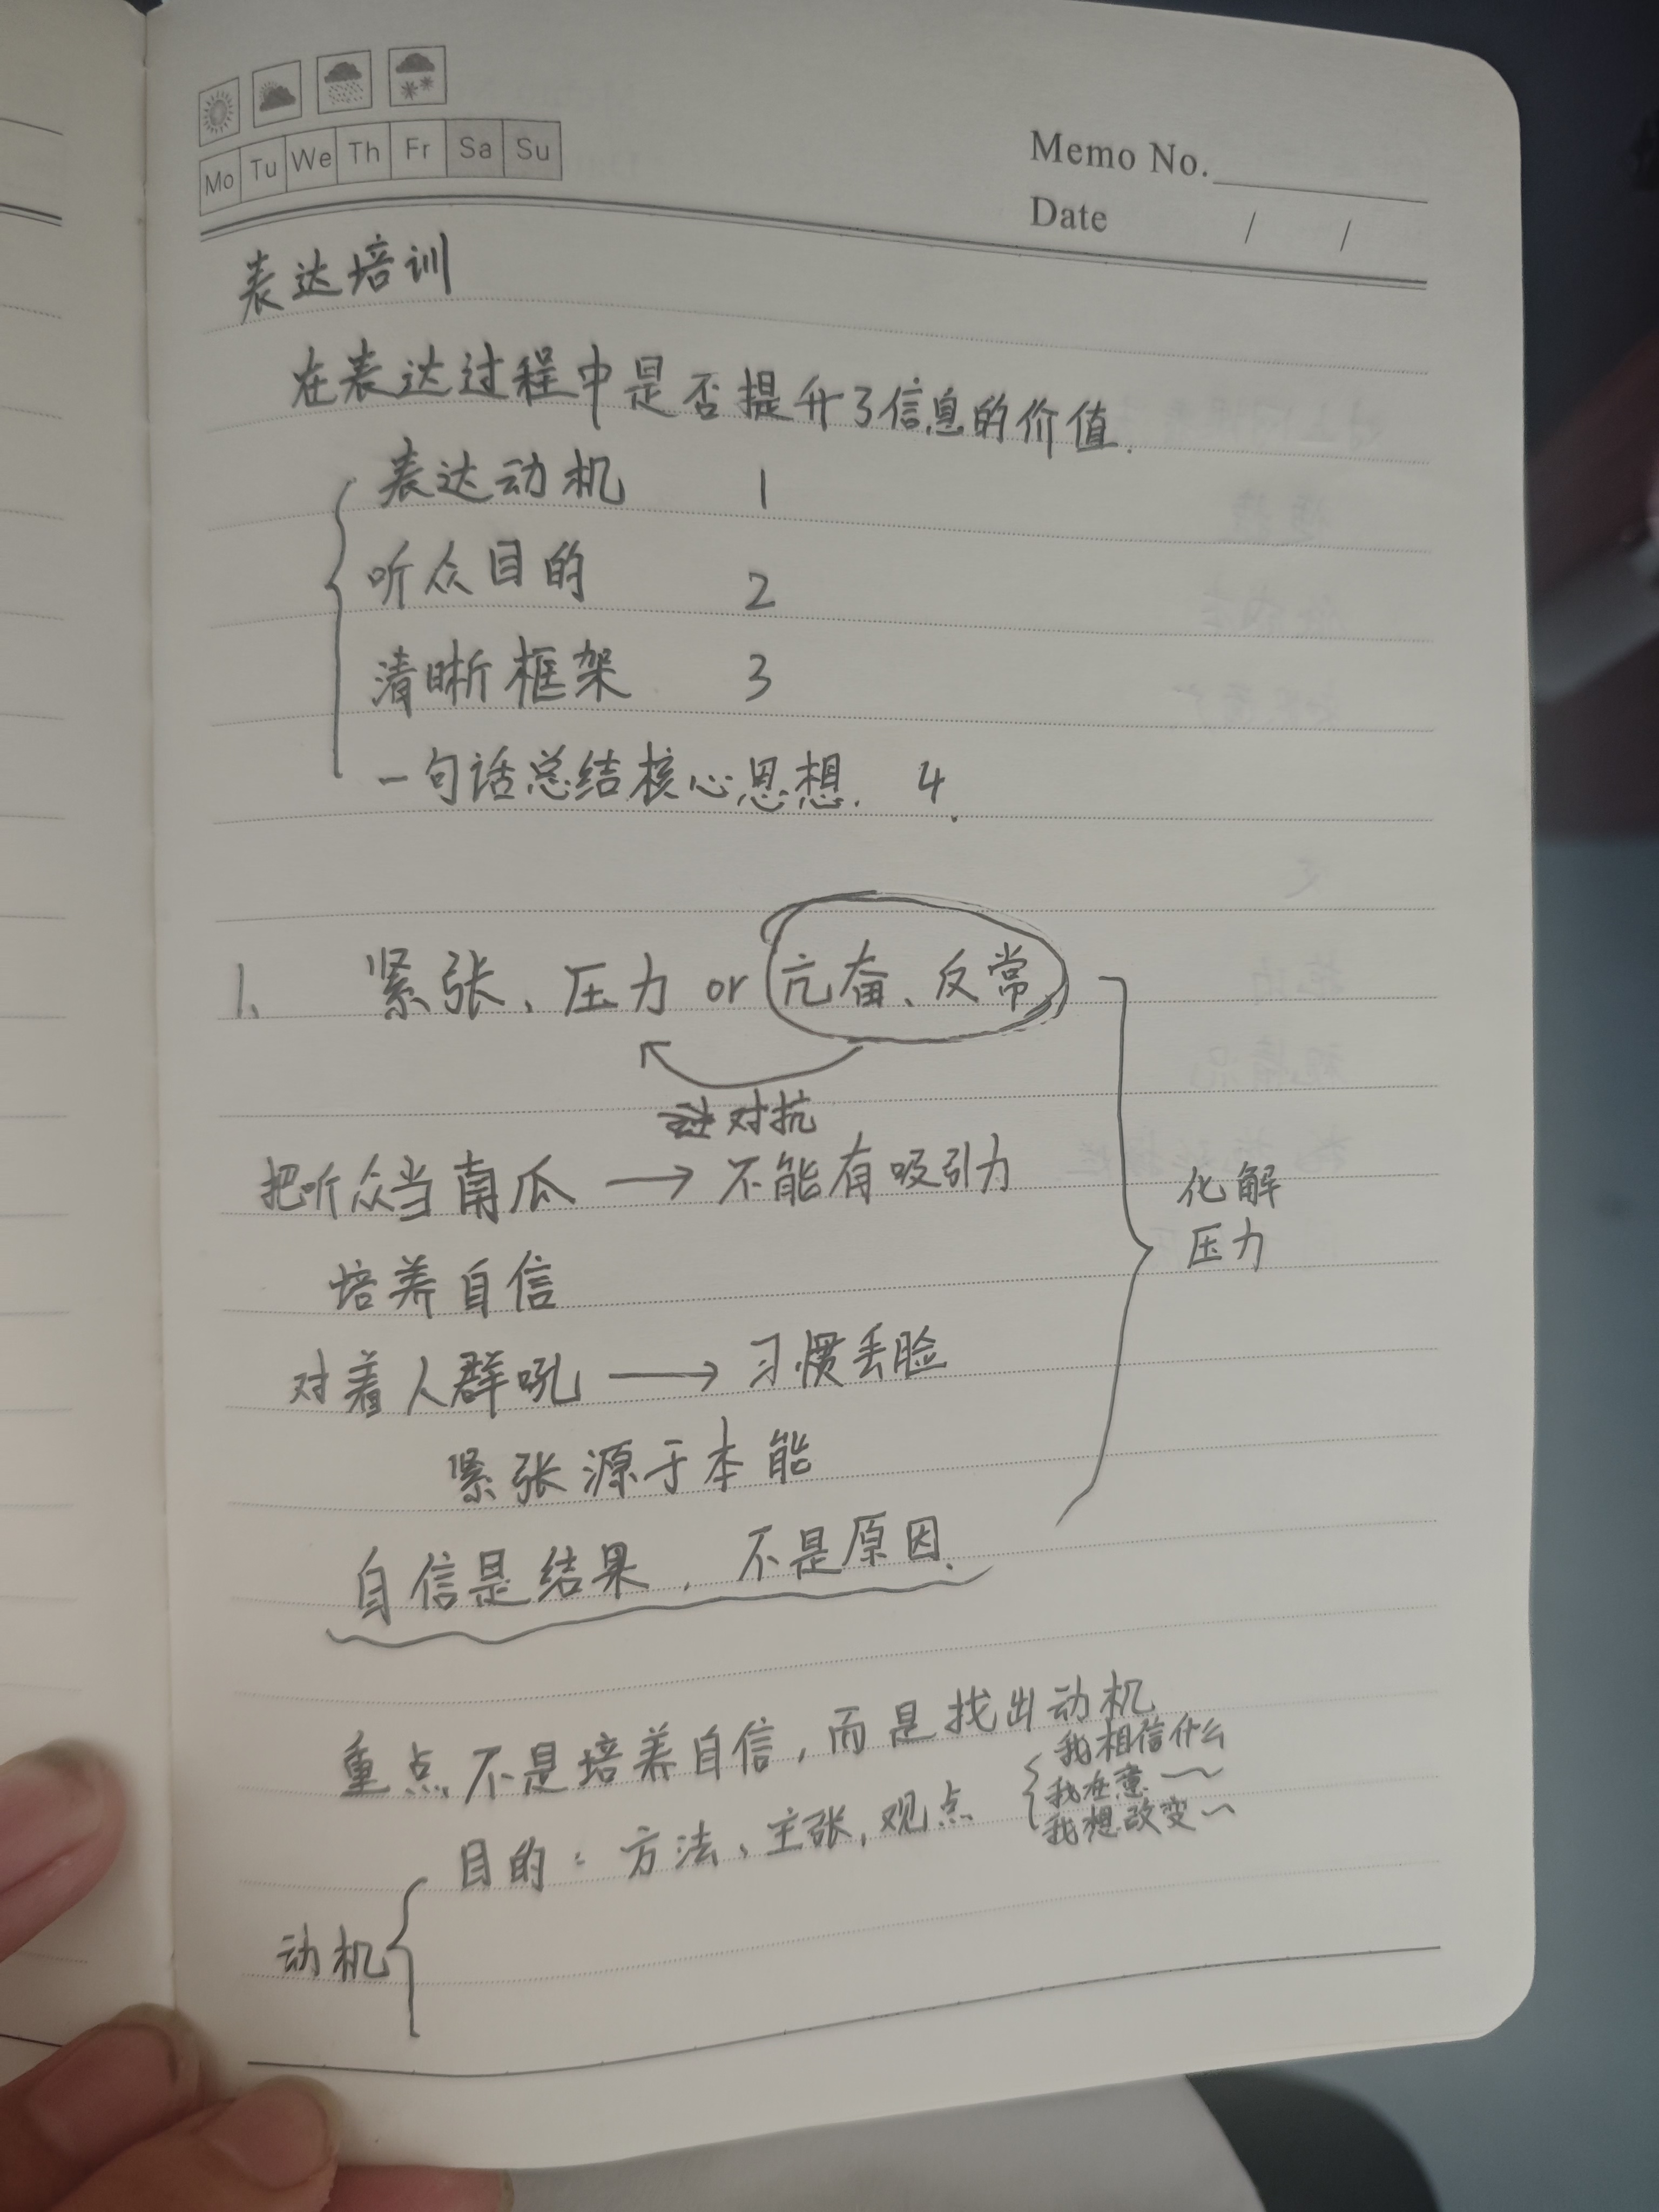 Mo Tu We Th Fr Sa Su
Memo No.
Date / /
表达培训
在表达过程中是否提升了信息的价值.
表达动机 1
听众目的 2
清晰框架 3
一句话总结核心思想. 4.
1、 紧张、压力 or 亢奋、反常
对抗
把听众当南瓜 → 不能有吸引力
化解
压力
培养自信
对着人群吼 → 习惯丢脸
紧张源于本能
自信是结果, 不是原因.
重点不是培养自信,而是找出动机
我相信什么
我在意～
我想改变～
目的: 方法、主张,观点
动机